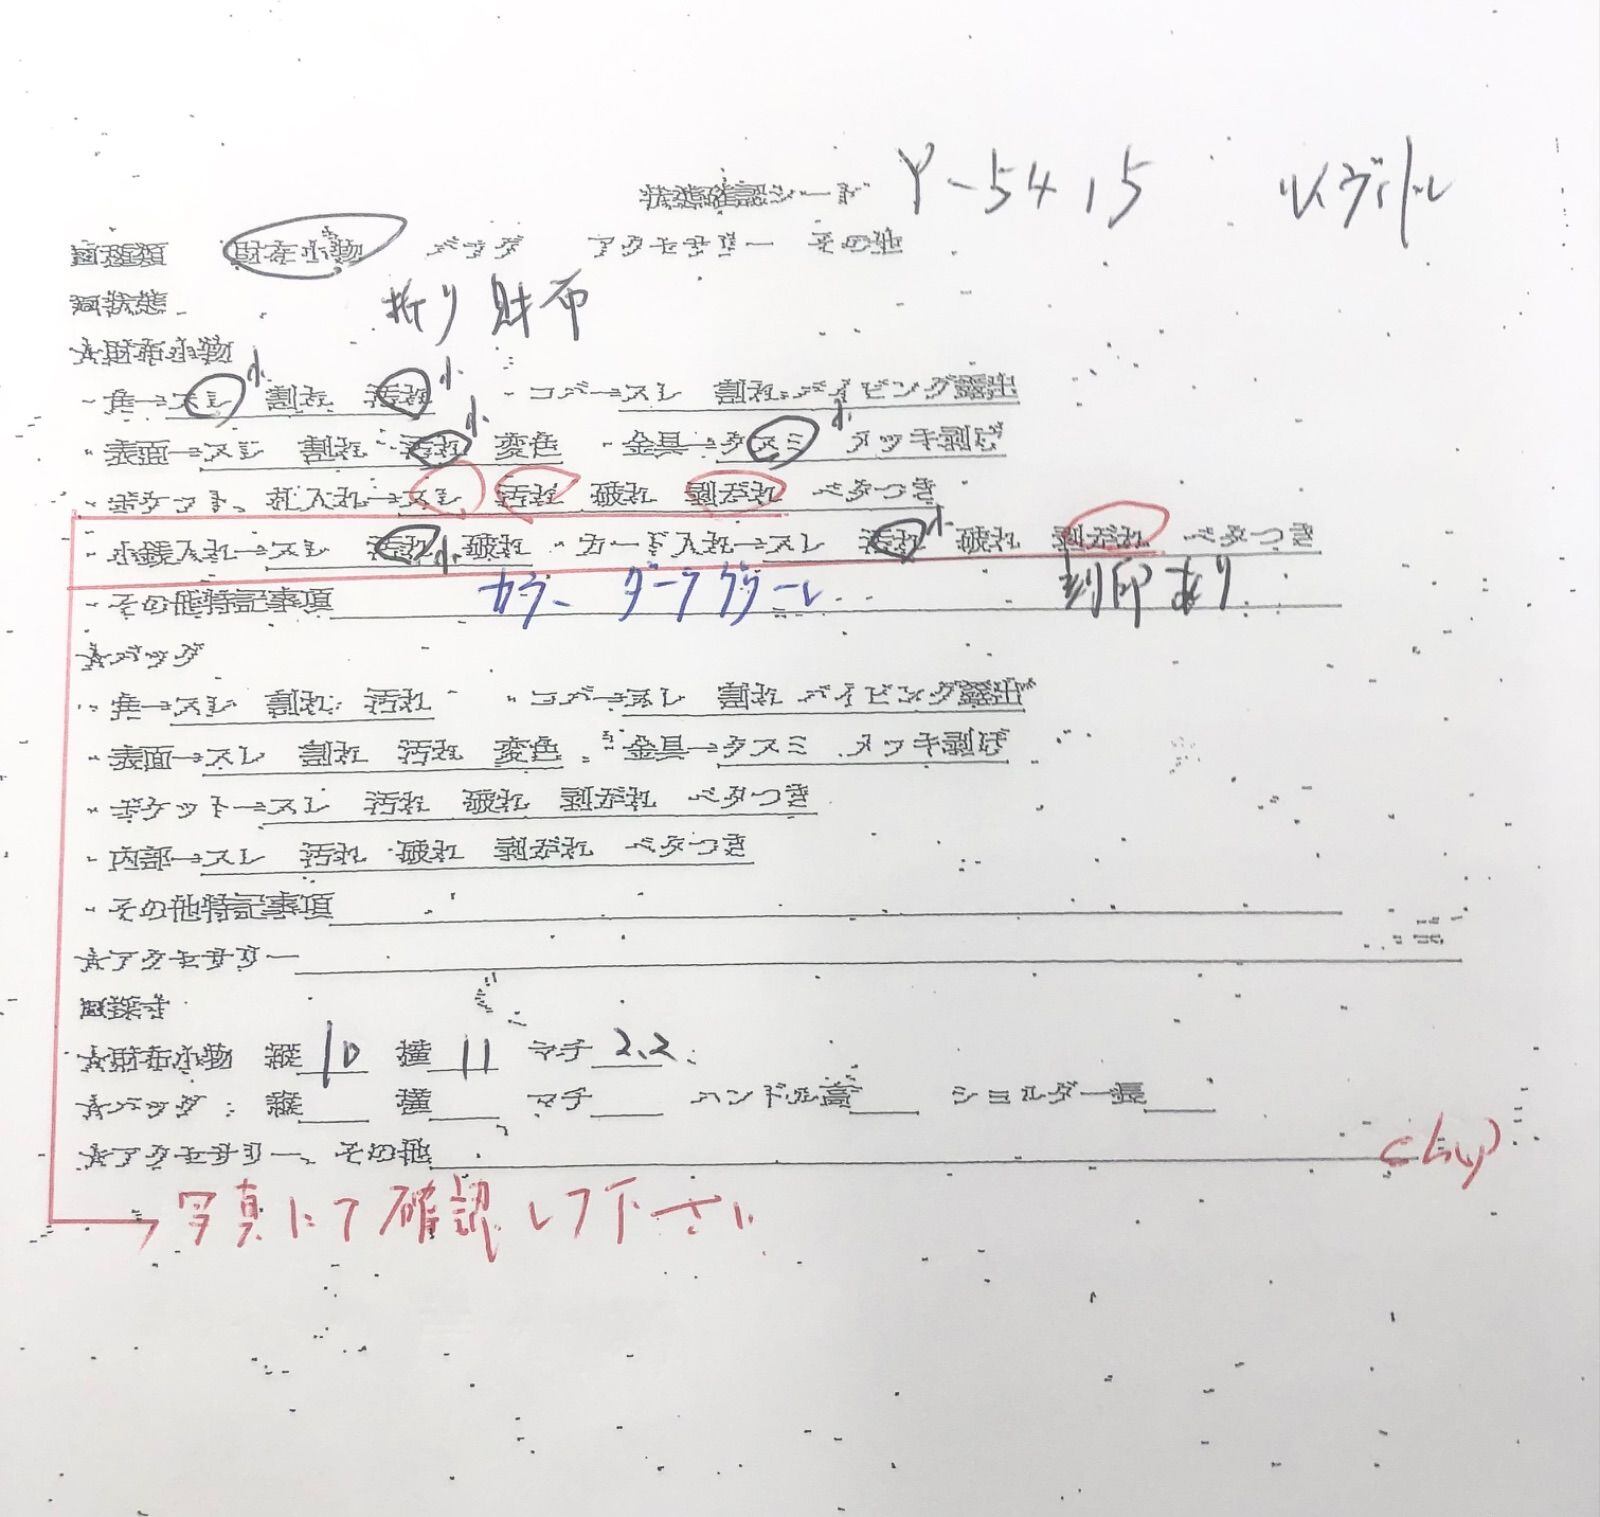 状態確認シート Y-5415 ルイヴィトン
■種類 財布小物 バッグ アクセサリー その他
■状態 折り財布
★財布小物
・角→スレ 小 割れ 汚れ 小 ・コバ→スレ 割れ パイピング露出
・表面→スレ 割れ 汚れ 小 変色 ・金具→クスミ 小 メッキ剥げ
・ポケット、札入れ→スレ 汚れ 破れ 剥がれ ベタつき
・小銭入れ→スレ 汚れ 小 破れ ・カード入れ→スレ 汚れ 小 破れ 剥がれ ベタつき
・その他特記事項 カラー 刻印あり
★バッグ
・角→スレ 割れ 汚れ ・コバ→スレ 割れ パイピング露出
・表面→スレ 割れ 汚れ 変色 ・金具→クスミ メッキ剥げ
・ポケット→スレ 汚れ 破れ 剥がれ ベタつき
・内部→スレ 汚れ 破れ 剥がれ ベタつき
・その他特記事項
★アクセサリー
■採寸
★財布小物 縦 10 横 11 マチ 2.2
★バッグ 縦 横 マチ ハンドル高 ショルダー長
★アクセサリー、その他
写真にて確認して下さい